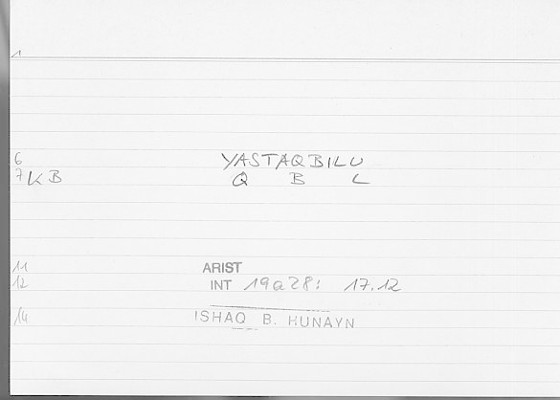 1
6 YASTAQBILU
7 KB Q B L
11 ARIST
12 INT 19a28: 17.12
14 ISHAQ B. HUNAYN